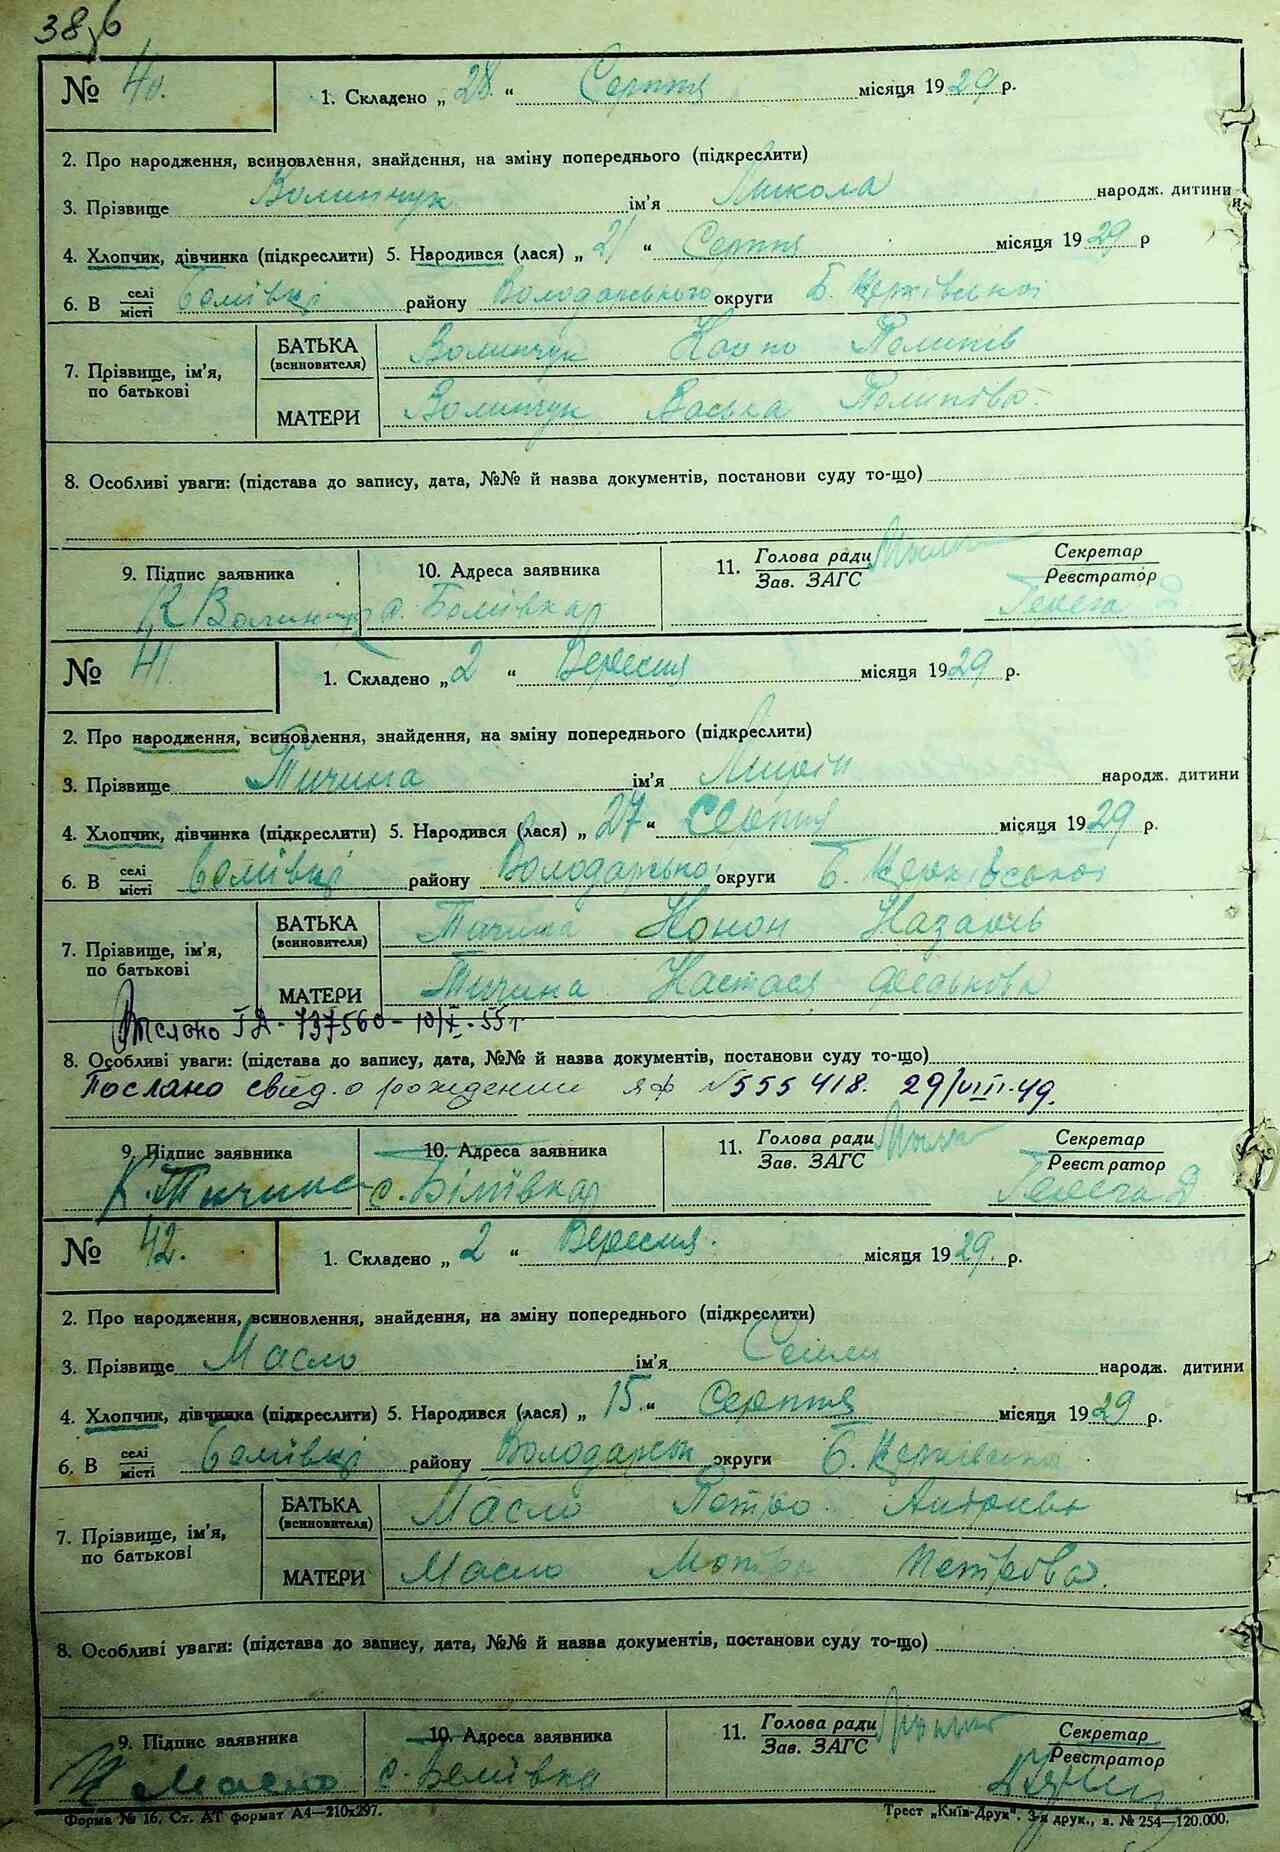 № 40. 1. Складено „28" Серпня місяця 1929 р.
2. Про народження, всиновлення, знайдення, на зміну попереднього (підкреслити)
3. Прізвище Волинчук ім'я Микола народж. дитини
4. Хлопчик, дівчинка (підкреслити) 5. Народився (лася) „21" Серпня місяця 1929 р
6. В селі місті району Володарського округи Б. Церківської
БАТЬКА (всиновителя) Волинчук Полипів
7. Прізвище, ім'я, по батькові
МАТЕРИ Волинчук Васька Полипова
8. Особливі уваги: (підстава до запису, дата, №№ й назва документів, постанови суду то-що)
9. Підпис заявника 10. Адреса заявника 11. Голова ради Зав. ЗАГС Секретар Реєстратор
К с.
№ 41. 1. Складено „2" Вересня місяця 1929 р.
2. Про народження, всиновлення, знайдення, на зміну попереднього (підкреслити)
3. Прізвище Тичина ім'я народж. дитини
4. Хлопчик, дівчинка (підкреслити) 5. Народився (лася) „27" Серпня місяця 1929 р.
6. В селі місті району Володарської округи Б. Церківської
БАТЬКА (всиновителя) Тичина Конон
7. Прізвище, ім'я, по батькові
МАТЕРИ Тичина Настася Федькова
ГА - 737560 - 10/X - 55 г.
8. Особливі уваги: (підстава до запису, дата, №№ й назва документів, постанови суду то-що)
Послано свид. о рождении ЯФ №555418. 29/VIII-49.
9. Підпис заявника 10. Адреса заявника 11. Голова ради Зав. ЗАГС Секретар Реєстратор
К. Тичина с.
№ 42. 1. Складено „2" Вересня. місяця 1929. р.
2. Про народження, всиновлення, знайдення, на зміну попереднього (підкреслити)
3. Прізвище Масло ім'я народж. дитини
4. Хлопчик, дівчинка (підкреслити) 5. Народився (лася) „15." Серпня місяця 1929 р.
6. В селі місті району Володарськ округи Б. Церківська
БАТЬКА (всиновителя) Масло Петро
7. Прізвище, ім'я, по батькові
МАТЕРИ Масло Мотря Петрова.
8. Особливі уваги: (підстава до запису, дата, №№ й назва документів, постанови суду то-що)
9. Підпис заявника 10. Адреса заявника 11. Голова ради Зав. ЗАГС Секретар Реєстратор
Масло с.
Форма № 16. Ст. АТ формат А4—210х297. Трест „Київ-Друк". 3-я друк., з. № 254—120.000.